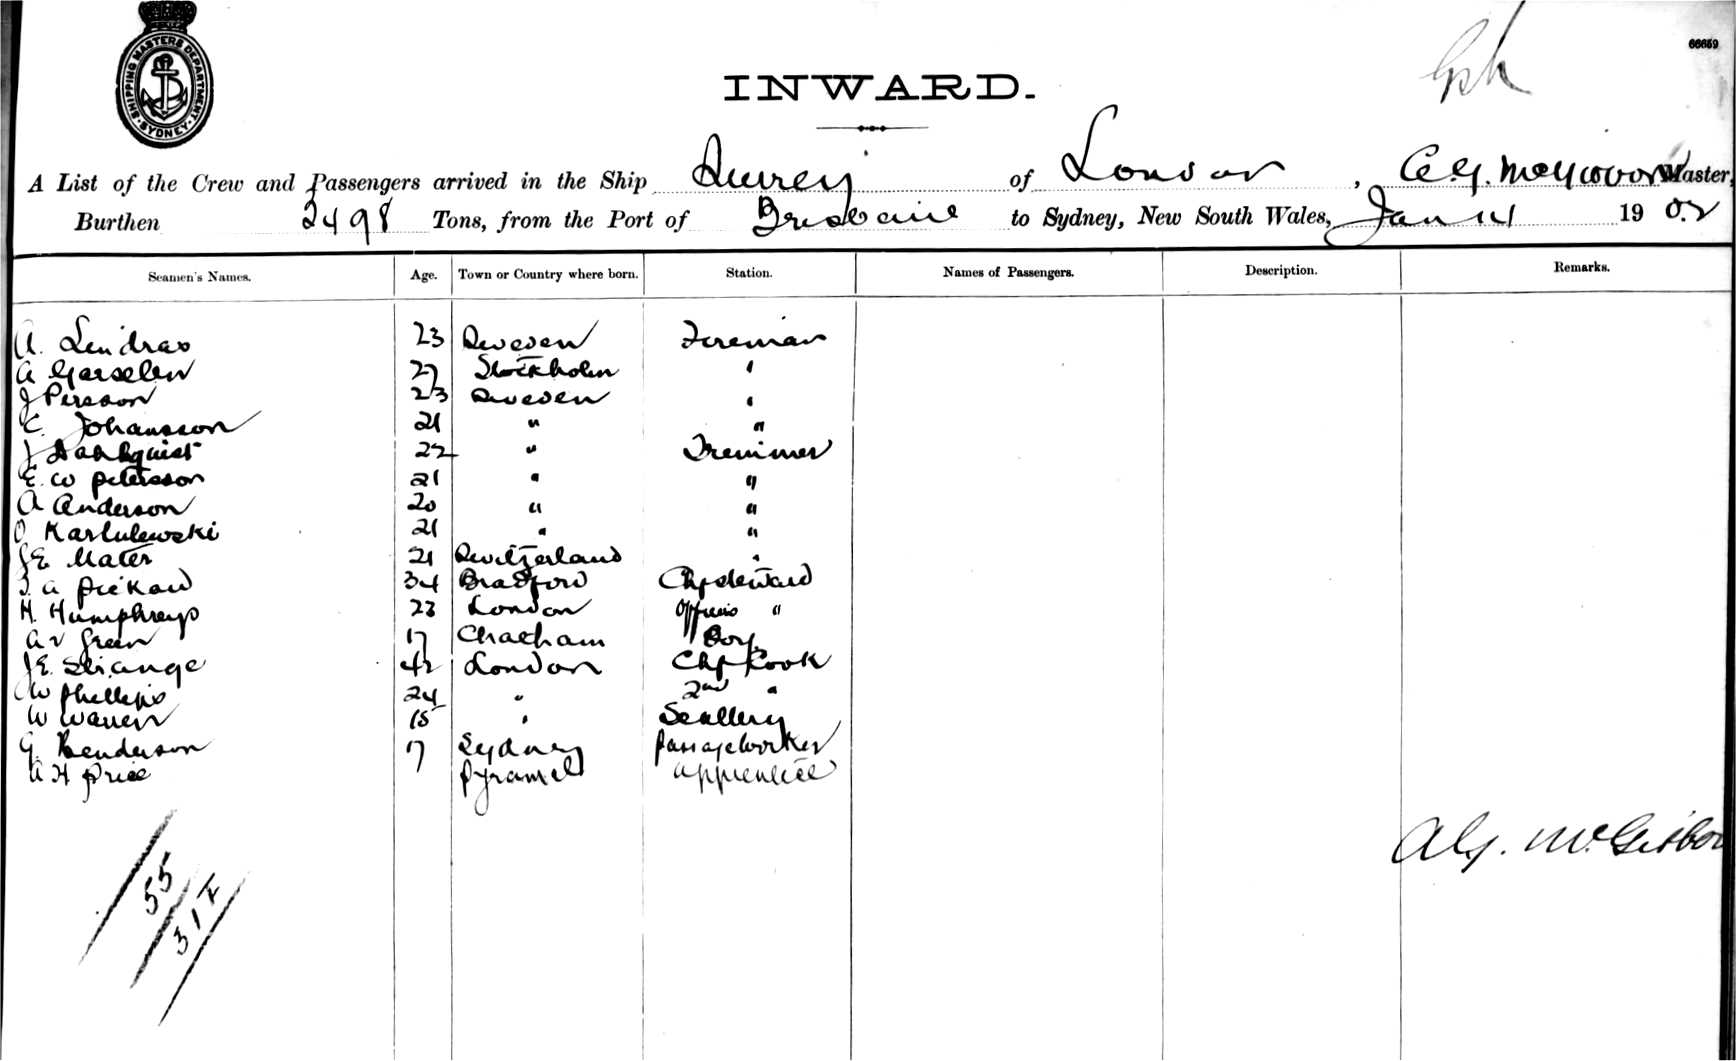 SHIPPING MASTERS DEPARTMENT SYDNEY
66659
INWARD.
A List of the Crew and Passengers arrived in the Ship Surrey of London, Master,
Burthen 2498 Tons, from the Port of Brisbane to Sydney, New South Wales, Jan 14 1902
Seamen's Names. Age. Town or Country where born. Station. Names of Passengers. Description. Remarks.
A. 23 Sweden Fireman
A 27 Stockholm "
J Persson 23 Sweden "
C. Johansson 21 " "
J 22 " Trimmer
E. W Petersson 21 " "
A Anderson 20 " "
O Karlulewski 21 " "
J E Mater 21 Switzerland "
34 Bradford Ch Steward
H. Humphreys 23 London Officers "
A V Green 17 Chatham Boy
J E. Strange 42 London Chf Cook
W Phillips 24 " 2nd "
W Warren 15 " Scullery
G. Henderson 17 Sydney Passage Worker
A H Price Pyramid Apprentice
A G. McGibbon
55
31